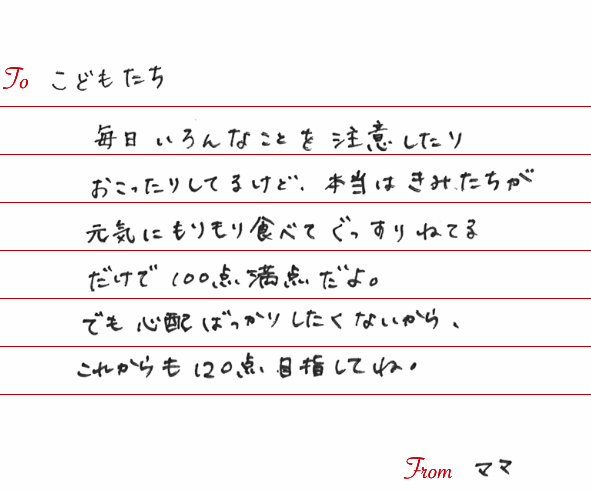 To こどもたち
毎日いろんなことを注意したり
おこったりしてるけど、本当はきみたちが
元気にもりもり食べてぐっすりねてる
だけで100点満点だよ。
でも心配ばっかりしたくないから、
これからも120点目指してね。
From ママ